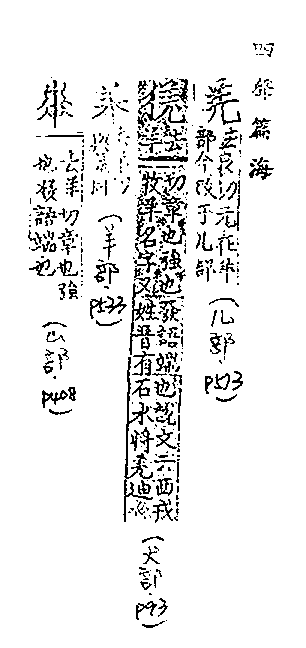 四聲篇海
羌 去良切元在羊
部今改于儿部
(儿部.p573)
去羊切章也強也發語端也說文云西戎
牧羊名字又姓晉有石水將羌迪
(犬部.p93)
與羌同
(羊部.p533)
去羊切章也強
也發語端也
(厶部.p408)